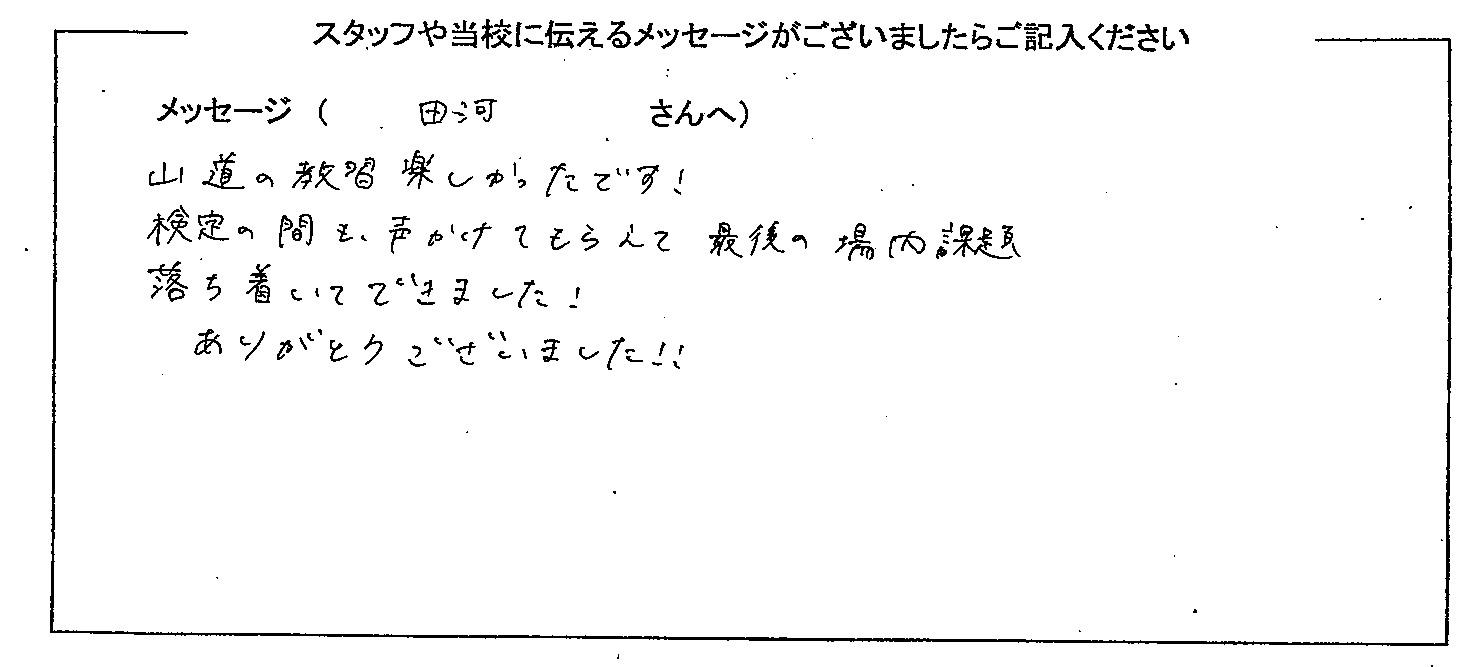 スタッフや当校に伝えるメッセージがございましたらご記入ください
メッセージ ( 田河 さんへ)
山道の教習楽しかったです!
検定の間も、声かけてもらえて最後の場内課題
落ち着いてできました!
ありがとうございました!!